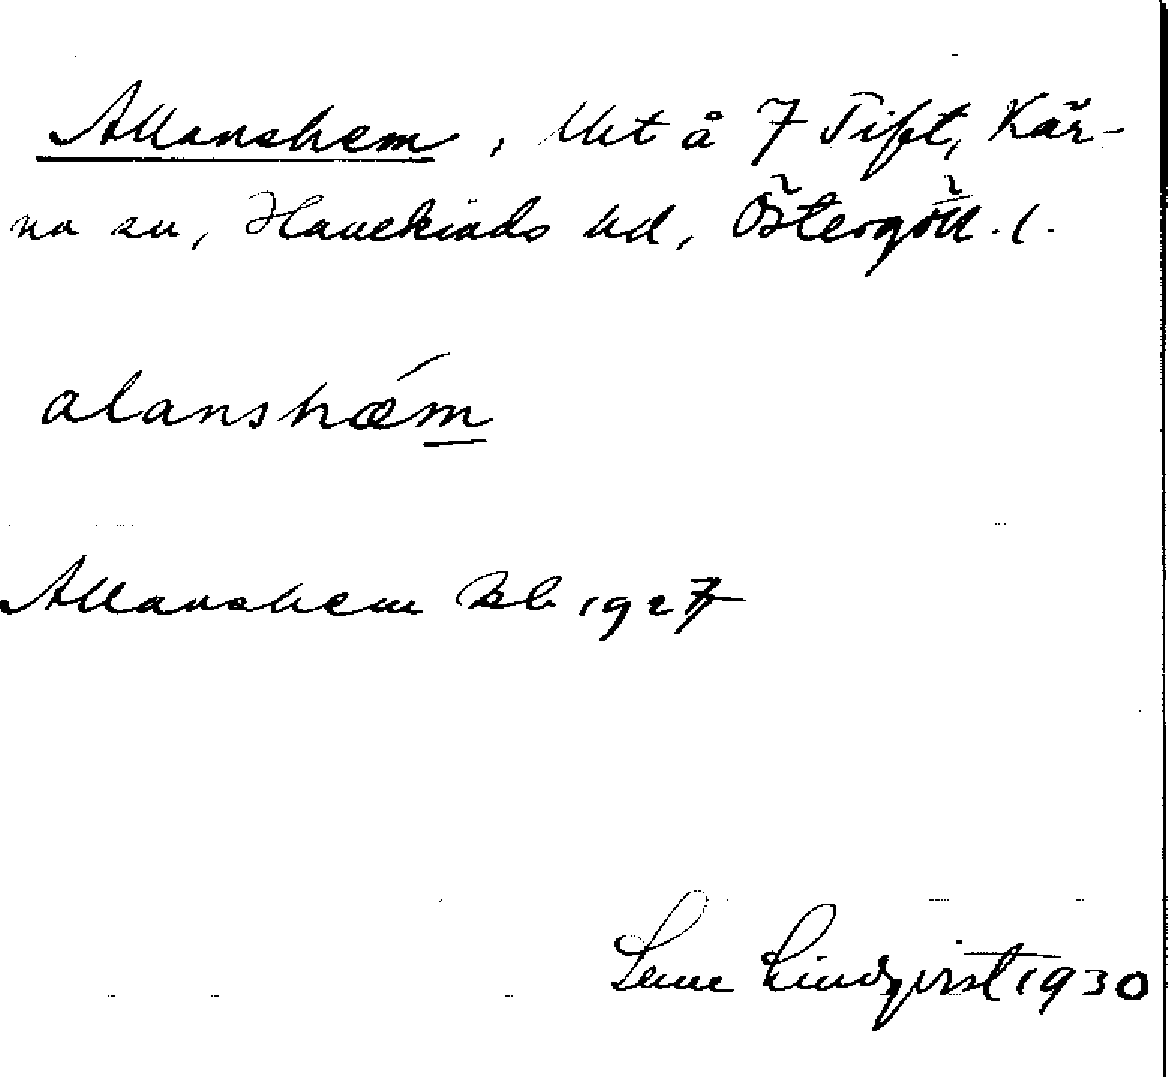 Allanshem, lht å 7 Tift, Kär-
na sn, Hanekinds hd, Östergötl. l.
alanshǽm
Allanshem Kb 1927
Sune Lindqvist 1930